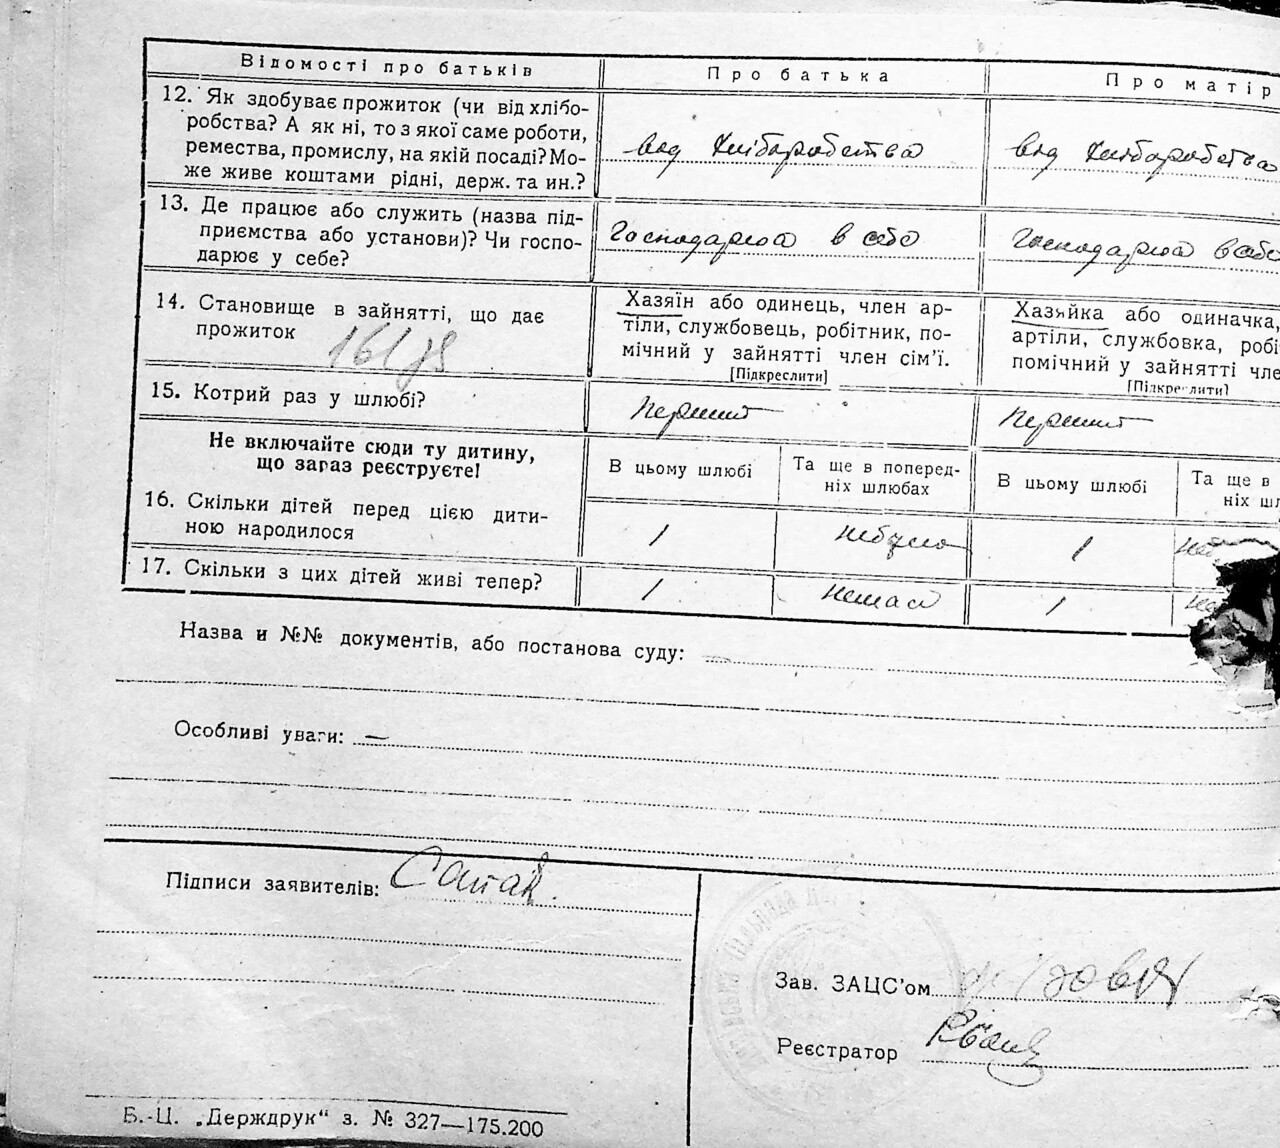 Відомості про батьків
Про батька
Про матір
12. Як здобуває прожиток (чи від хлібо-
робства? А як ні, то з якої саме роботи,
ремества, промислу, на якій посаді? Мо-
же живе коштами рідні, держ. та ин.?
від хліборобства
від хліборобства
13. Де працює або служить (назва під-
приємства або установи)? Чи госпо-
дарює у себе?
Господарює в себе
Господарює в себе
14. Становище в зайнятті, що дає
прожиток
Хазяїн або одинець, член ар-
тіли, службовець, робітник, по-
мічний у зайнятті член сім’ї.
[Підкреслити]
Хазяйка або одиначка,
артіли, службовка, робі
помічний у зайнятті чле
[Підкреслити]
15. Котрий раз у шлюбі?
Перший
Перший
Не включайте сюди ту дитину,
що зараз реєструєте!
В цьому шлюбі
Та ще в поперед-
ніх шлюбах
В цьому шлюбі
Та ще в
ніх шл
16. Скільки дітей перед цією дити-
ною народилося
1
небуло
1
17. Скільки з цих дітей живі тепер?
1
немає
1
Назва и №№ документів, або постанова суду: —
Особливі уваги: —
Підписи заявителів:
Зав. ЗАЦС’ом
Реєстратор
Б.-Ц. „Держдрук“ з. № 327—175.200